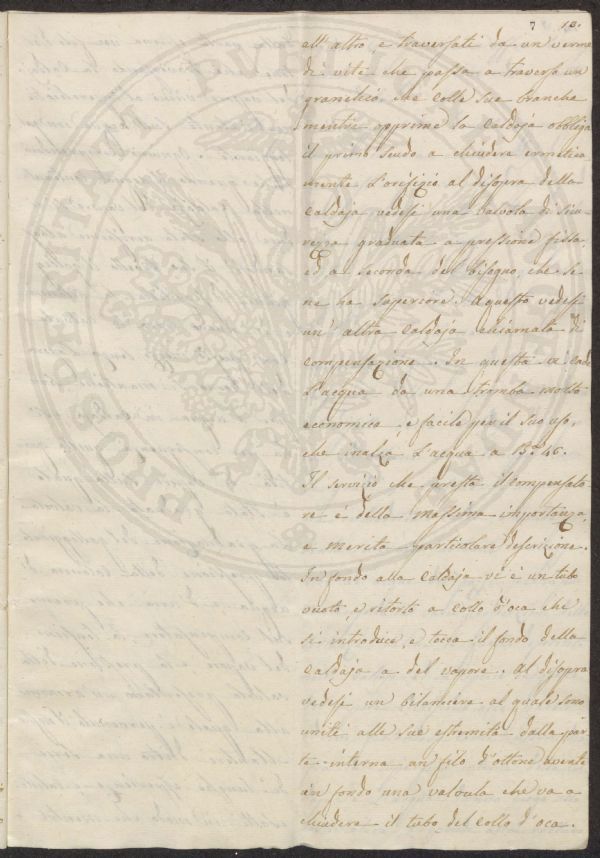 7 13.
all' altro, e traversati da un verme
di vite che passa a traverso un
granitico, che colle sue branche
mentre opprime la Caldaja obbliga
il primo scudo a chiudere ermetica
mente l'orefizio al disopra della
Caldaja vedesi una valvola di sicu-
rezza graduata a pressione fissa,
ed a seconda del bisogno, che se
ne ha superiore. Aquesta vedesi
un' altra Caldaja chiamata di
compensazione. In questa vi cade
l'acqua da una tromba molto
economica, e facile per il suo uso,
che inalza l'acqua a B.a 46.
Il servizio che presta il compensato-
re é della massima importanza,
e merita particolare descrizione.
In fondo alla Caldaja vi é un tubo
vuoto, e ritorto a collo d'oca che
si introduce, e tocca il fondo della
Caldaja a del vapore. Al disopra
vedesi un bilanciere al quale sono
unite alle sue estremità dalla par
te interna un filo d'ottone avente
in fondo una valvula che va a
chiudere il tubo del collo d'oca.
PROSPERITATI PUBLICAE